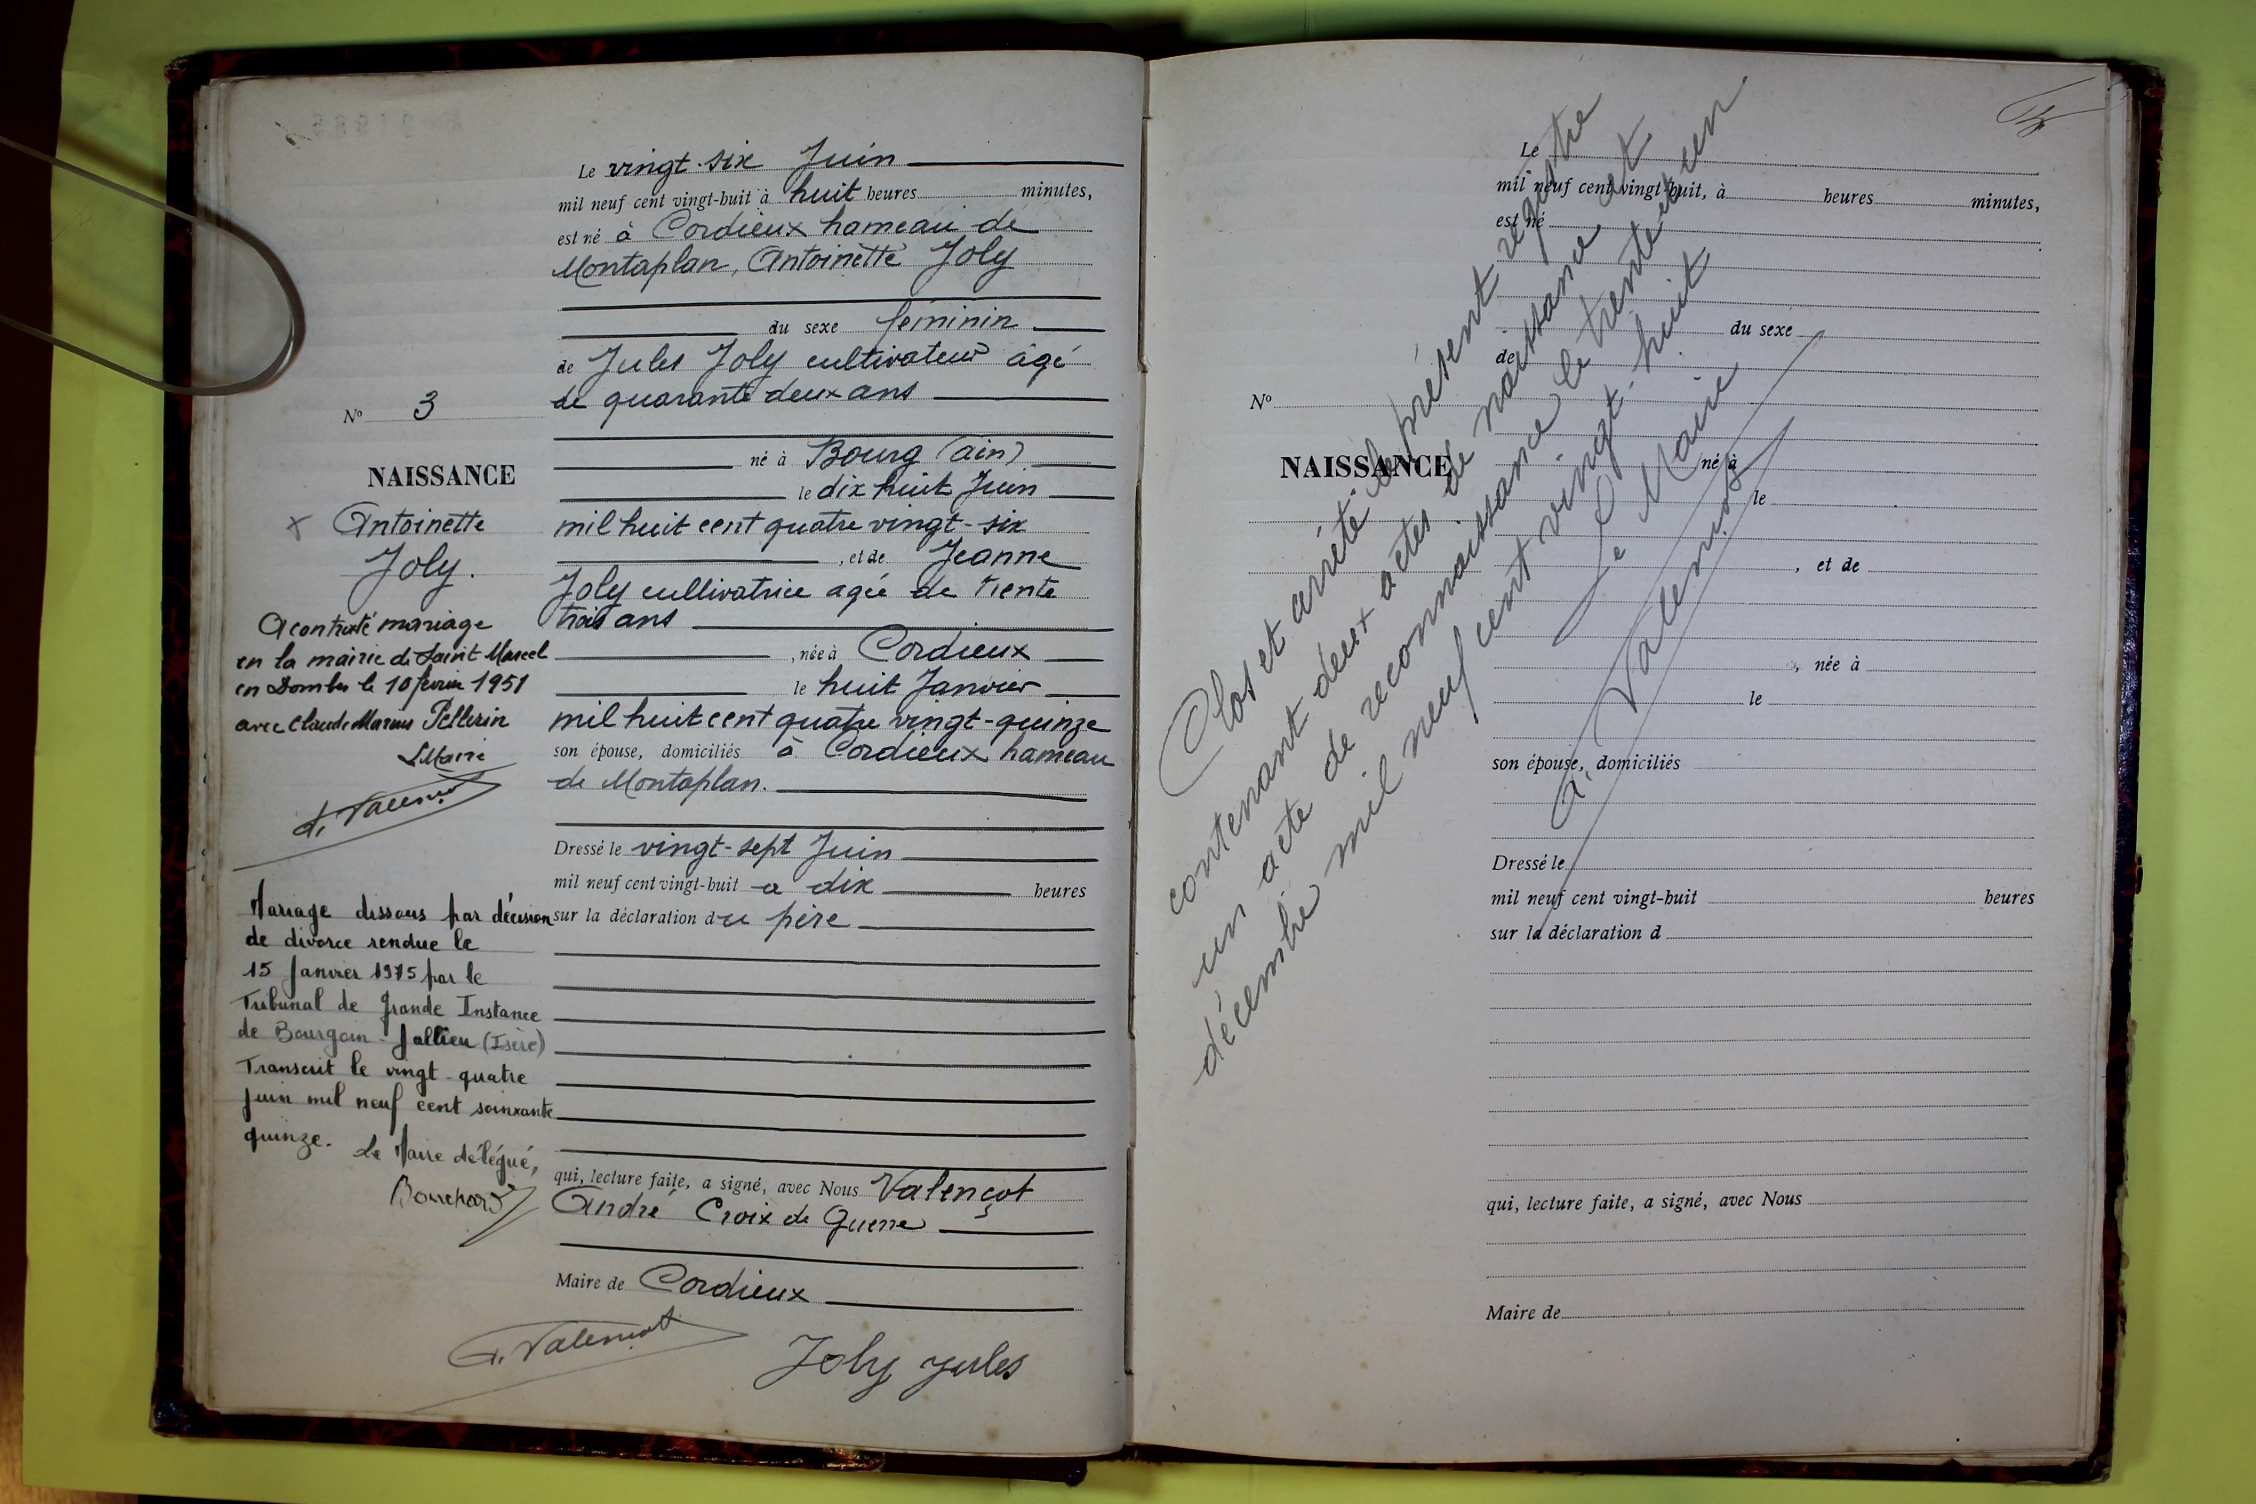 Le vingt-six Juin
mil neuf cent vingt-huit à huit heures minutes,
est né à Cordieux hameau de
Montaplan, Antoinette Joly
du sexe féminin
de Jules Joly cultivateur âgé
de quarante deux ans
né à Bourg (Ain)
le dix huit Juin
mil huit cent quatre vingt-six
, et de Jeanne
Joly cultivatrice agée de trente
trois ans
, née à Cordieux
le huit Janvier
mil huit cent quatre vingt-quinze
son épouse, domiciliés à Cordieux hameau
de Montaplan.
Dressé le vingt-sept Juin
mil neuf cent vingt-huit a dix heures
sur la déclaration du père
qui, lecture faite, a signé, avec Nous Valençot
André Croix de Guerre
Maire de Cordieux
A. Valençot
Joly Jules
No 3
NAISSANCE
x Antoinette
Joly.
A contracté mariage
en la mairie de Saint Marcel
en Dombes le 10 février 1951
avec Claude Marius Pellerin
Le Maire
A. Valençot
Mariage dissous par décision
de divorce rendue le
15 Janvier 1975 par le
Tribunal de Grande Instance
de Bourgoin-Jallieu (Isère)
Transcrit le vingt-quatre
Juin mil neuf cent soixante
quinze. Le Maire délégué,
Le
mil neuf cent vingt-huit, à heures minutes,
est né
du sexe
de
No
NAISSANCE
né à
le
, et de
, née à
le
son épouse, domiciliés
Dressé le
mil neuf cent vingt-huit heures
sur la déclaration d
qui, lecture faite, a signé, avec Nous
Maire de
Clos et arrêté le présent registre
contenant deux actes de naissance et
un acte de reconnaissance le trente et un
décembre mil neuf cent vingt-huit
Le Maire
A. Valençot